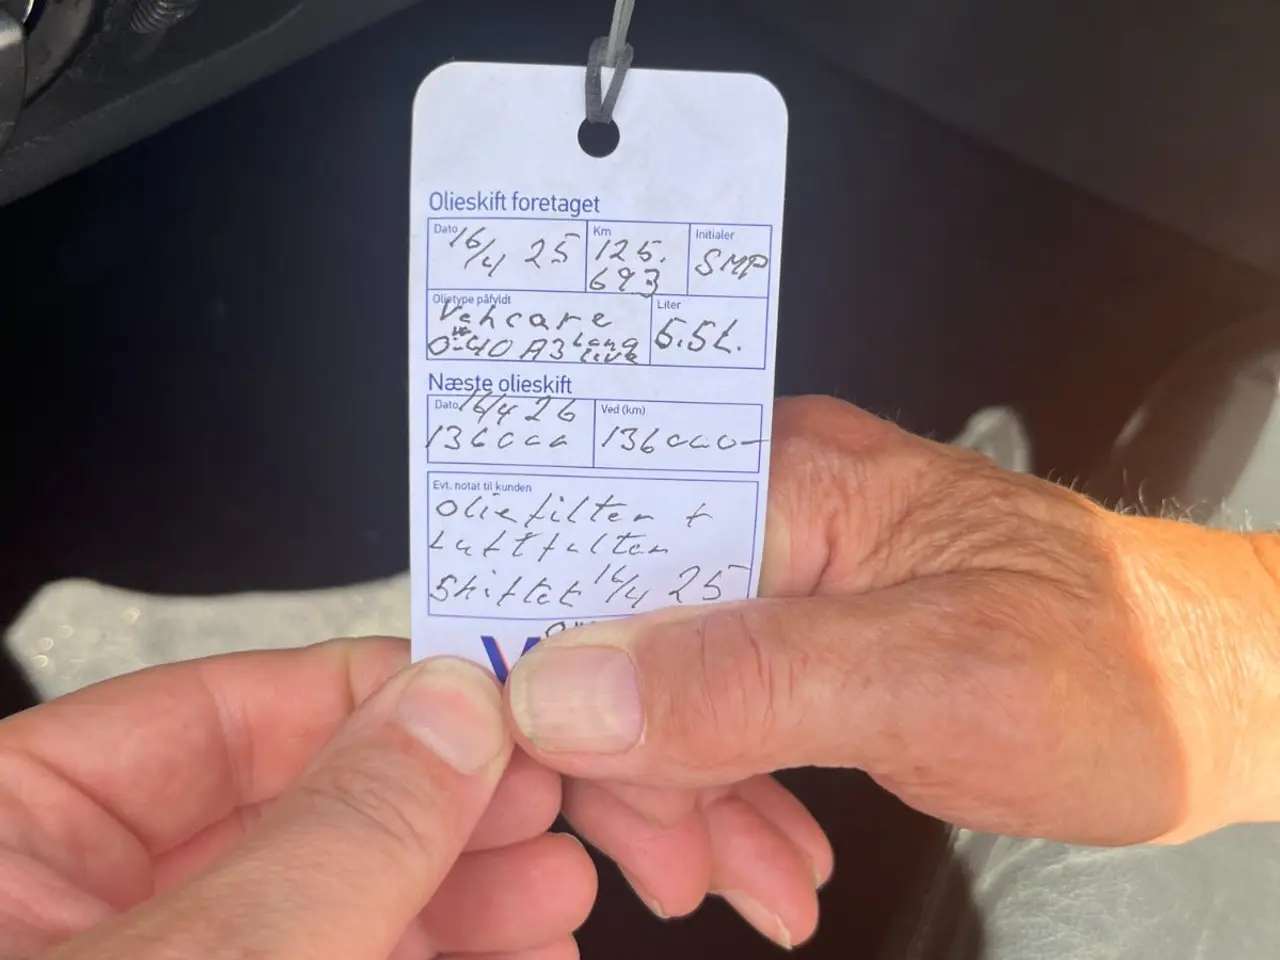 Olieskift foretaget
Dato Km Initialer
16/4 25 125. SMP
693
Olietype påfyldt Liter
Vehcare 5.5L.
0W-40 A3 Long Live
Næste olieskift
Dato 16/4 26 Ved (km)
136000 136000-
Evt. notat til kunden
Oliefilter +
Luftfilter
Skiftet 16/4 25